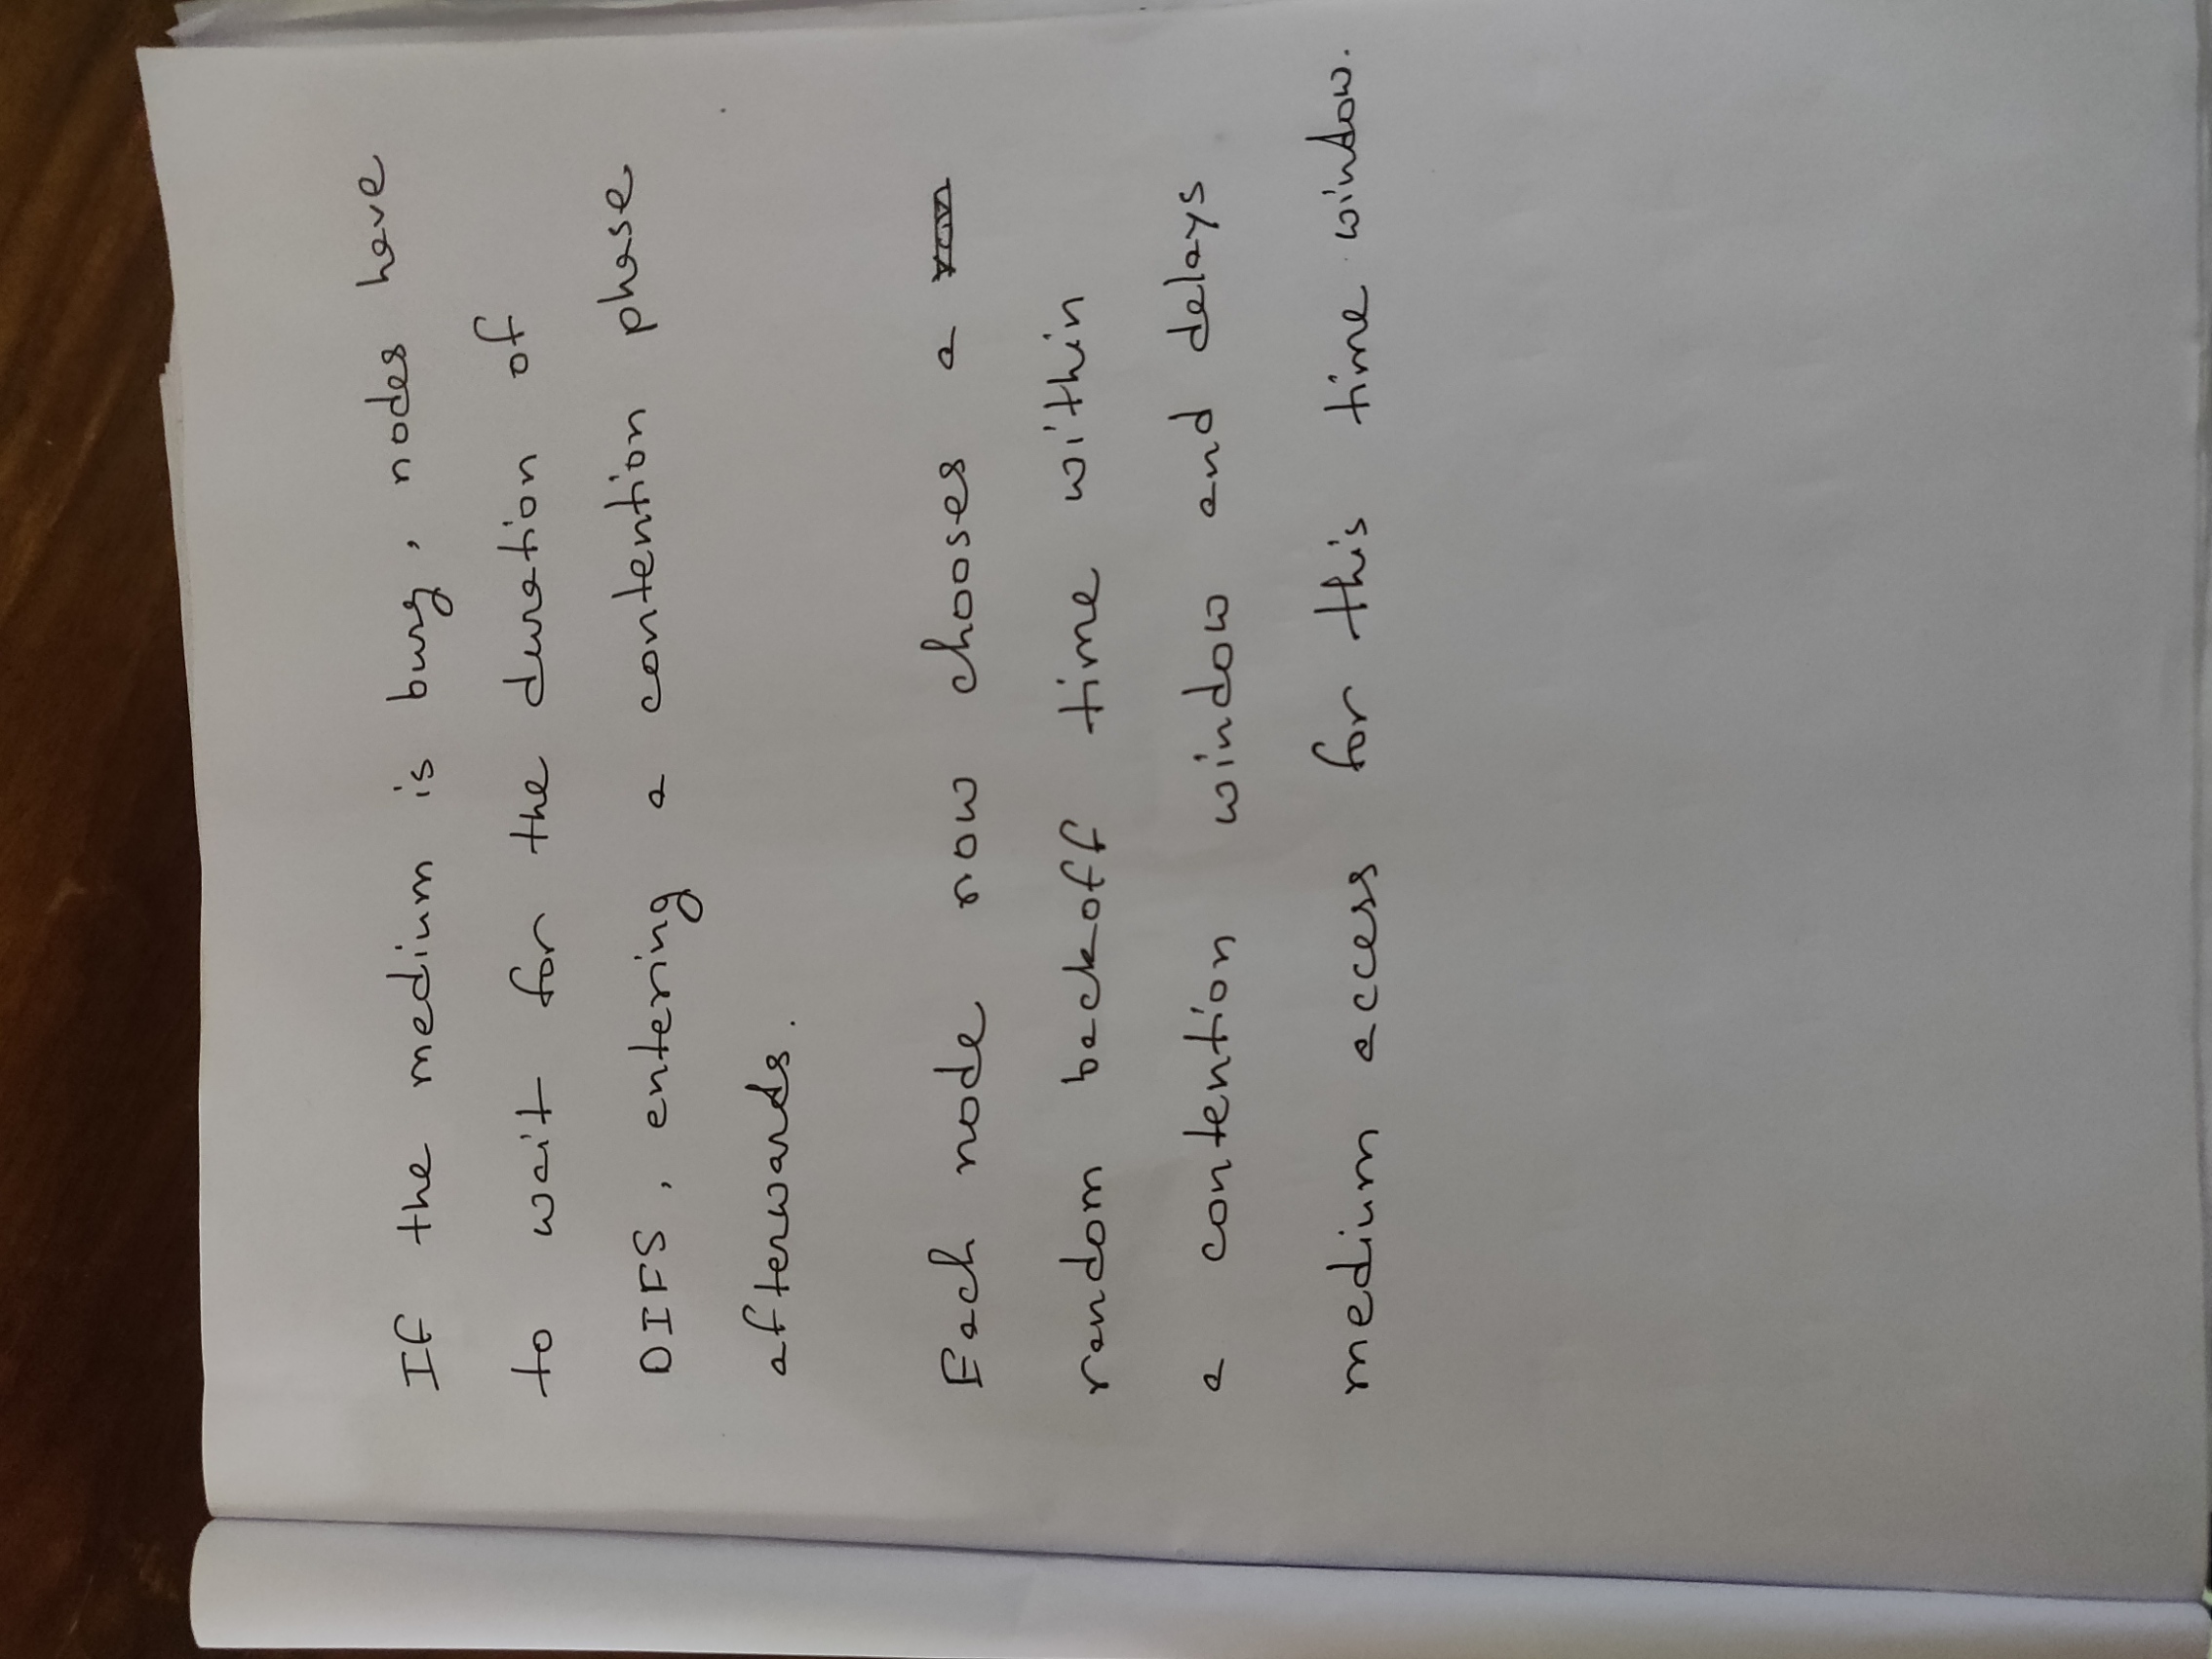 If the medium is busy, nodes have
to wait for the duration of
DIFS, entering a contention phase
afterwards.
Each node now chooses a ran
random backoff time within
a contention window and delays
medium access for this time window.